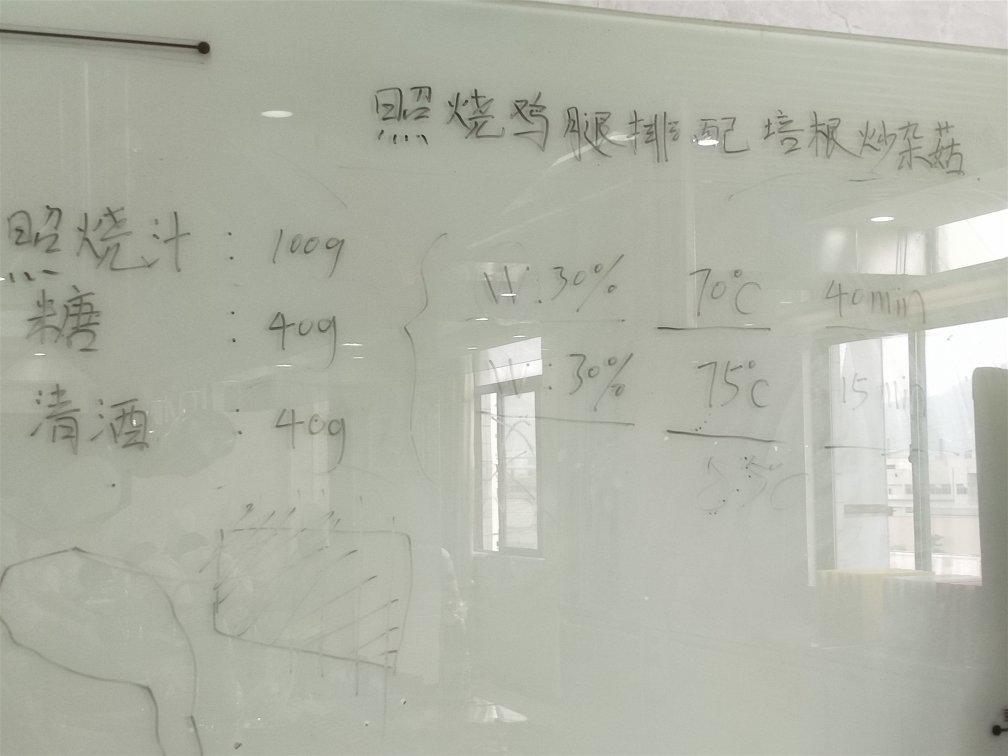 照烧鸡腿排配培根炒杂菇
照烧汁：100g
糖：40g
清酒：40g
W:30% 70°C 40min
W:30% 75°C 15min